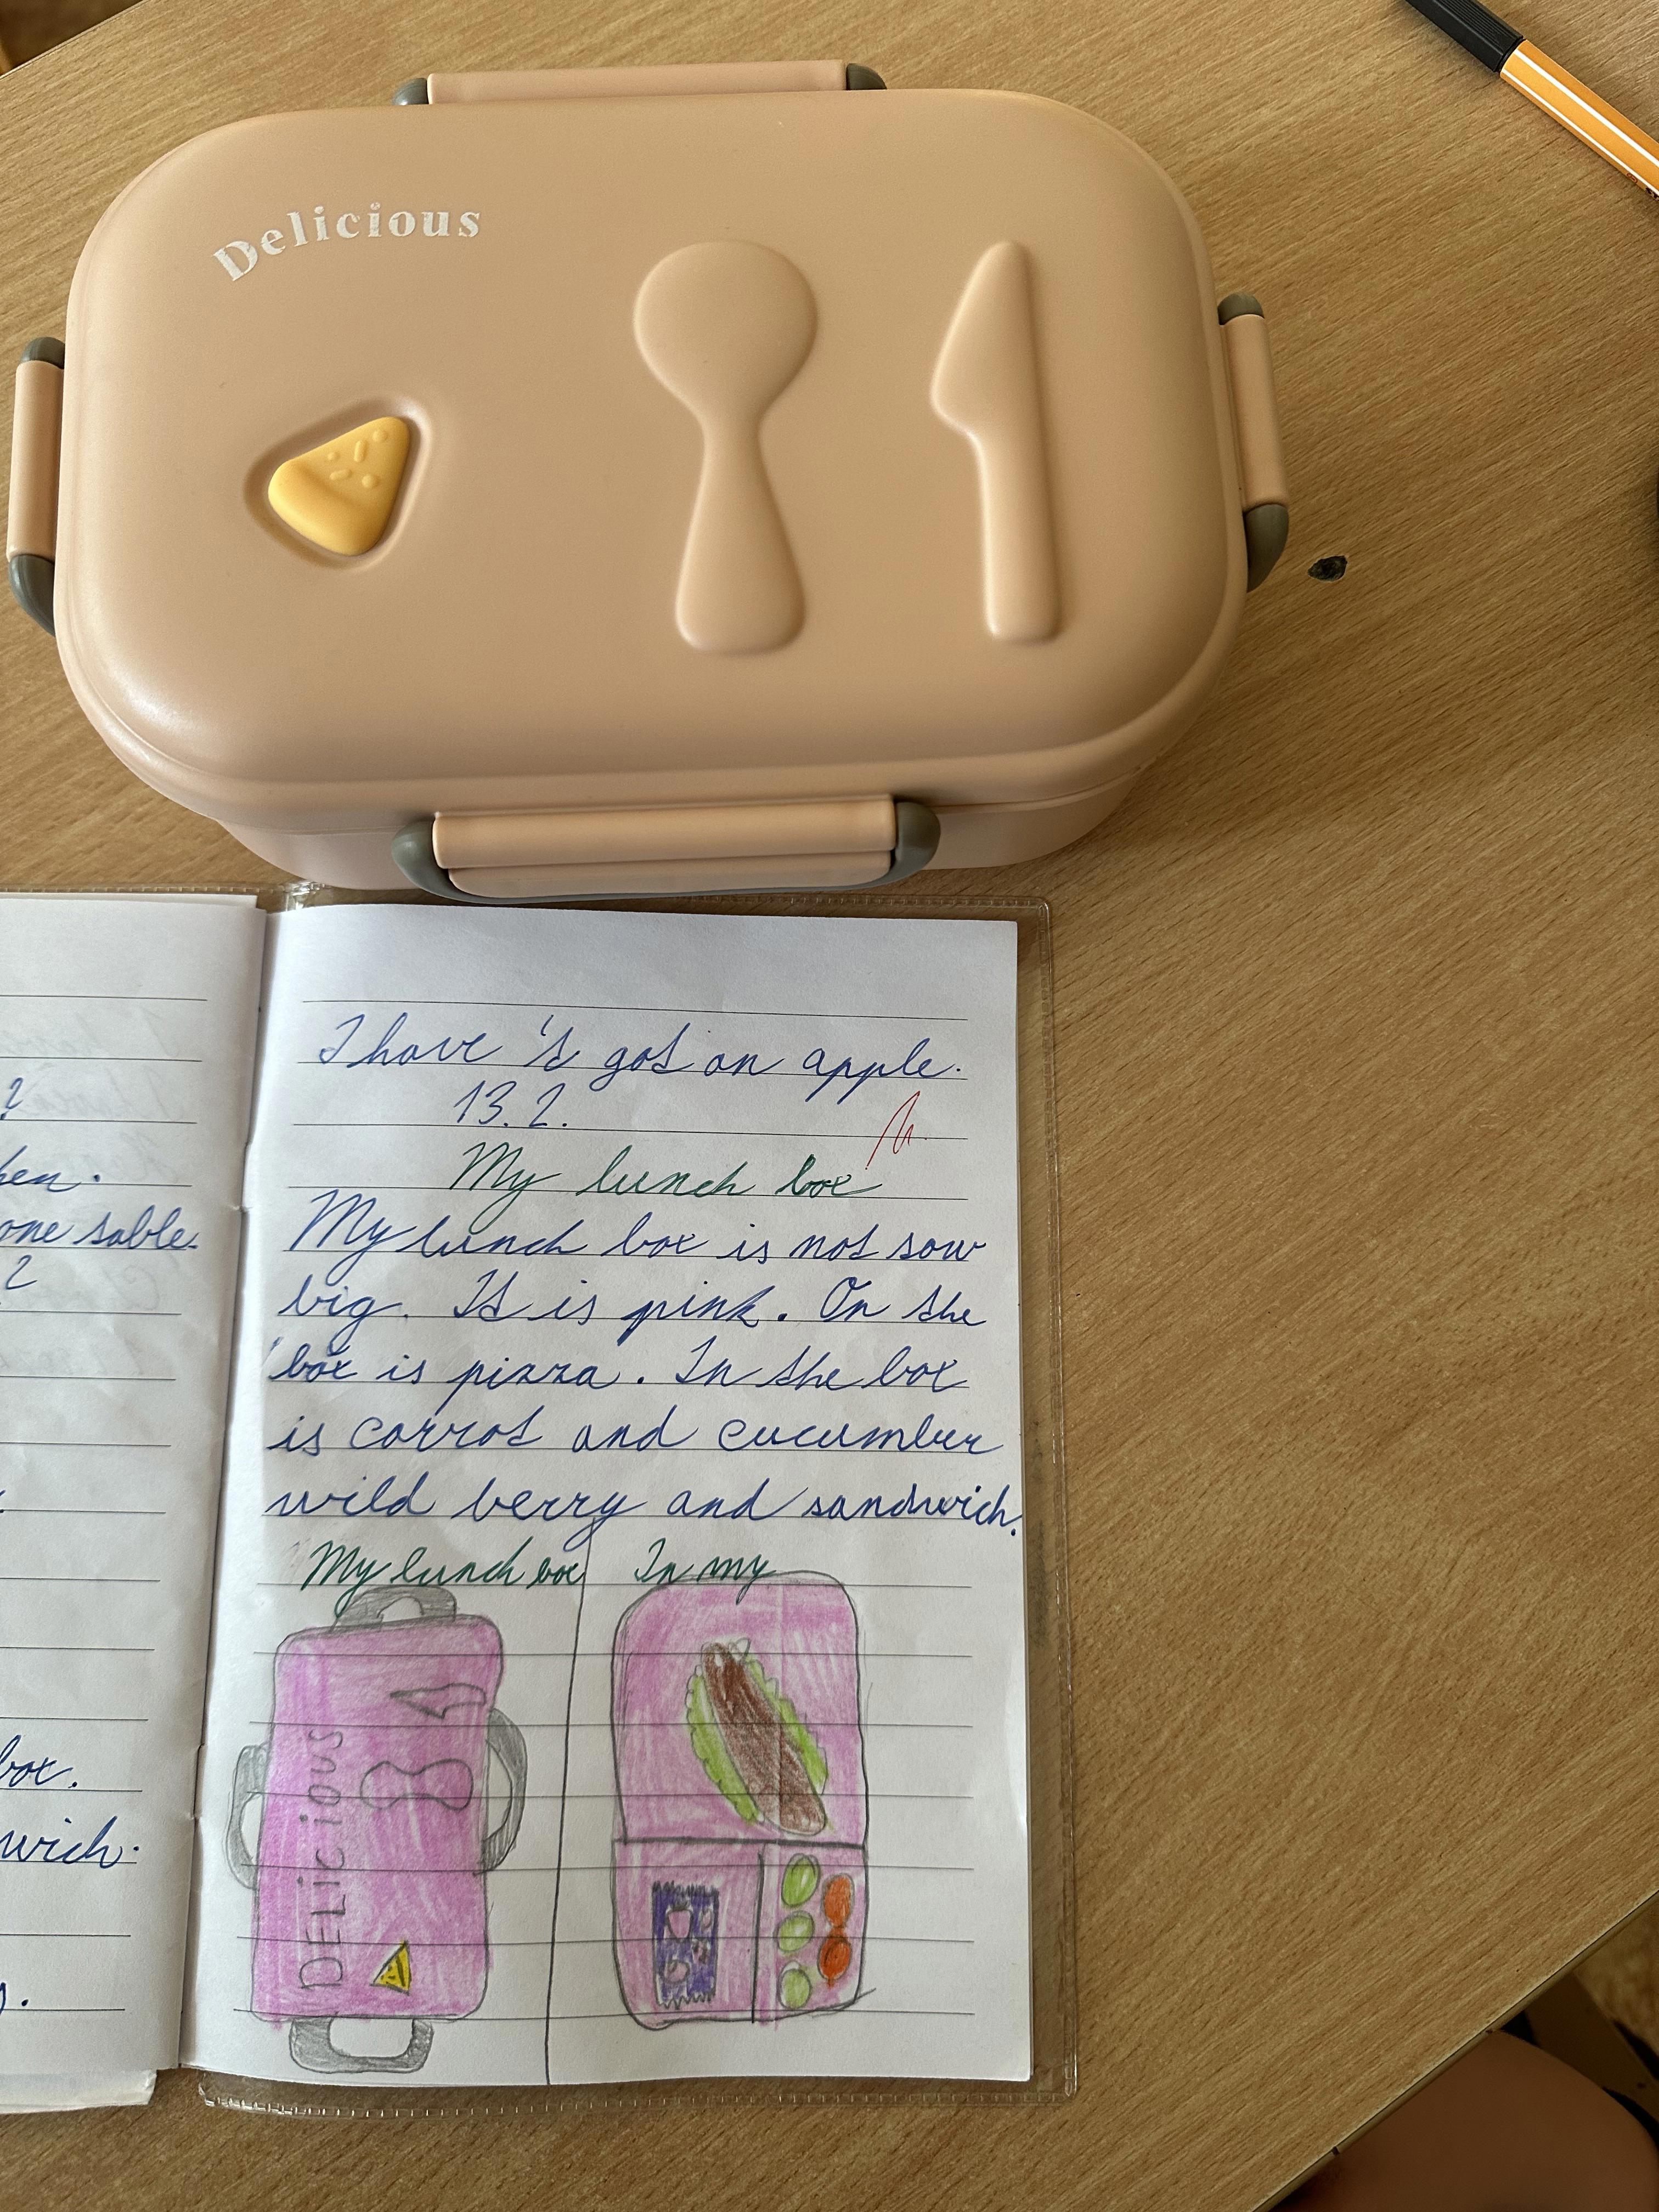 Delicious
?
hen.
one table.
?
box.
wich.
I have 't got an apple.
13. 2.
My lunch box
My lunch box is not sow
big. It is pink. On the
box is pizza. In the box
is carrot and cucumber
wild berry and sandwich.
My lunch box In my
DELICIOUS